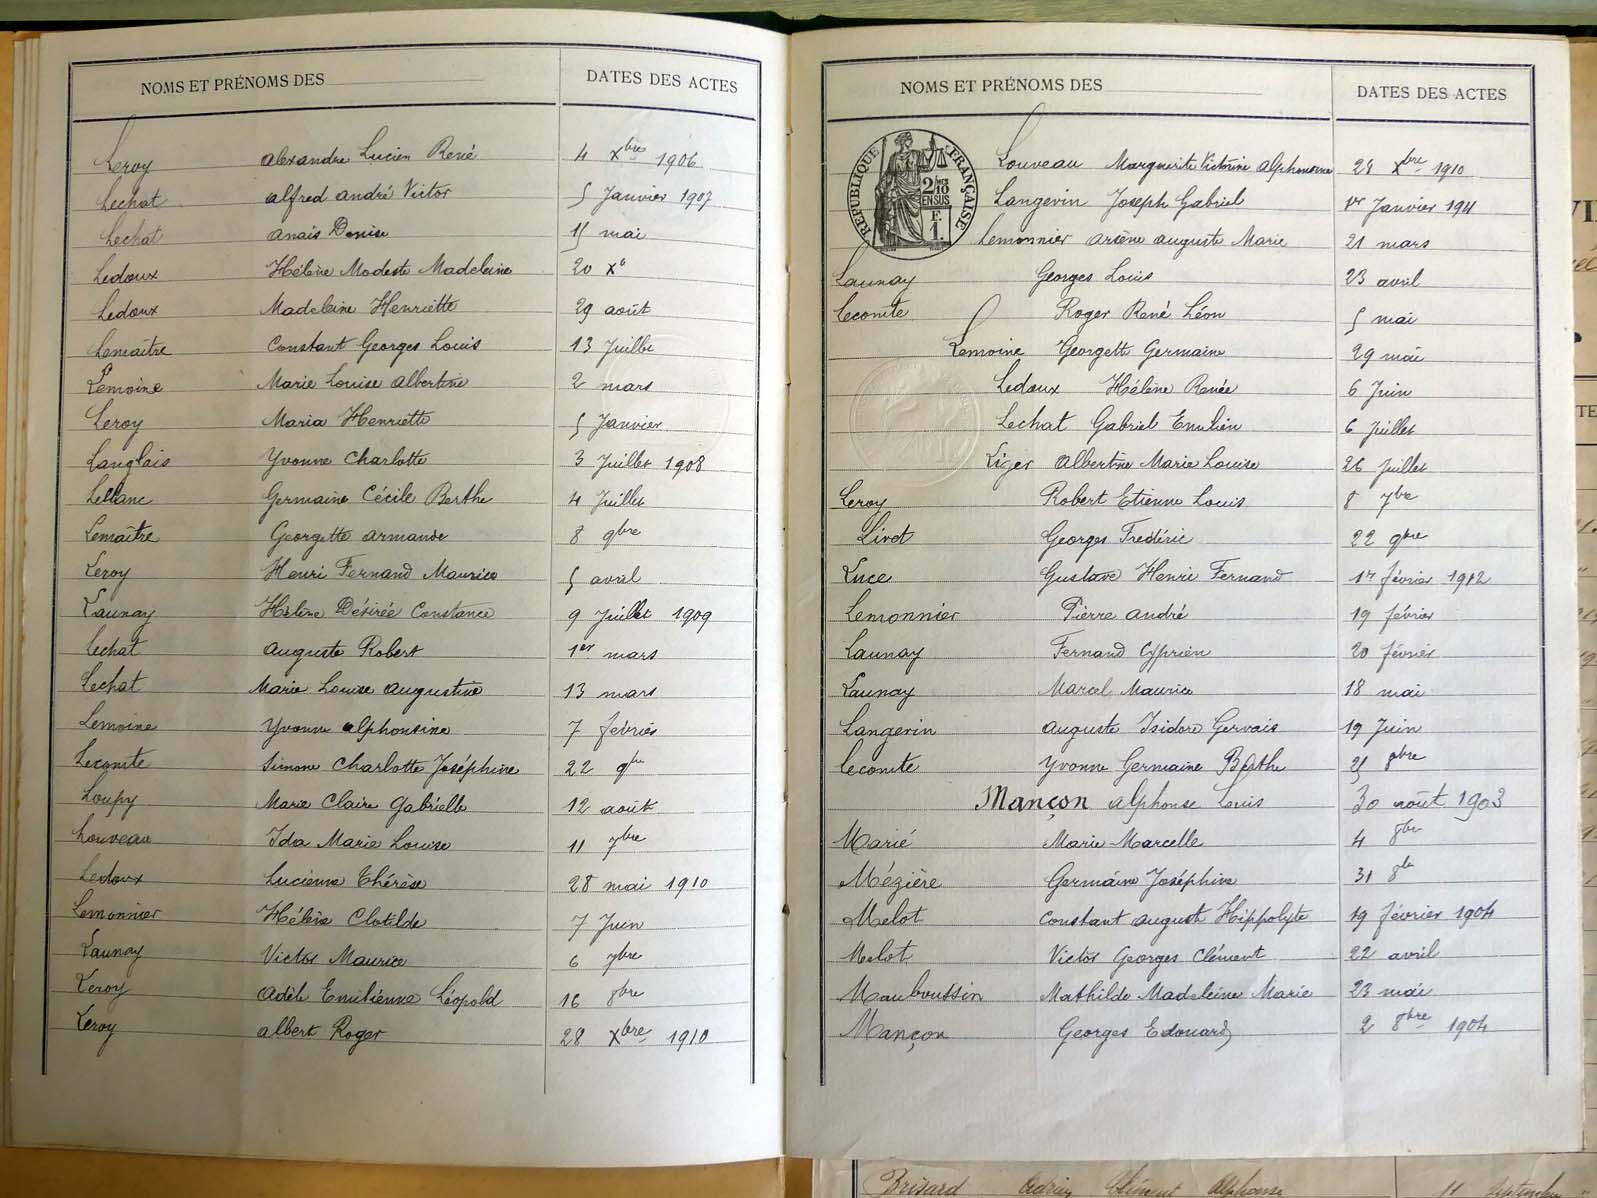 NOMS ET PRÉNOMS DES DATES DES ACTES
Leroy Alexandre Lucien René 4 Xbre 1906
Lechat Alfred André Victor 5 Janvier 1907
Lechat Anaïs Denise 15 mai
Ledoux Hélène Modeste Madeleine 20 Xb
Ledoux Madeleine Henriette 29 août
Lemaître Constant Georges Louis 13 Juillet
Lemoine Marie Louise Albertine 2 mars
Leroy Maria Henriette 5 Janvier
Langlais Yvonne Charlotte 3 Juillet 1908
Leblanc Germaine Cécile Berthe 4 Juillet
Lemaître Georgette Armande 8 9bre
Leroy Henri Fernand Maurice 5 avril
Launay Hélène Désirée Constance 9 Juillet 1909
Lechat Auguste Robert 1er mars
Lechat Marie Louise Augustine 13 mars
Lemoine Yvonne Alphonsine 7 février
Lecomte Simone Charlotte Joséphine 22 9bre
Loupy Marie Claire Gabrielle 12 août
Louveau Ida Marie Louise 11 7bre
Ledoux Lucienne Thérèse 28 mai 1910
Lemonnier Hélène Clotilde 7 Juin
Launay Victor Maurice 6 7bre
Leroy Adèle Emilienne Léopold 16 8bre
Leroy Albert Roger 28 Xbre 1910
NOMS ET PRÉNOMS DES DATES DES ACTES
RÉPUBLIQUE FRANÇAISE
2/10 EN SUS
F. 1.
Louveau Marguerite Victorine Alphonsine 28 Xbre 1910
Langevin Joseph Gabriel 1er Janvier 1911
Lemonnier Arsène Auguste Marie 21 mars
Launay Georges Louis 23 avril
Lecomte Roger René Léon 5 mai
Lemoine Georgette Germaine 29 mai
Ledoux Hélène Renée 6 Juin
Lechat Gabriel Emilien 6 Juillet
Liger Albertine Marie Louise 26 Juillet
Leroy Robert Etienne Louis 8 7bre
Livet Georges Frédéric 22 9bre
Luce Gustave Henri Fernand 1er février 1912
Lemonnier Pierre André 19 février
Launay Fernand Cyprien 20 février
Launay Marcel Maurice 18 mai
Langevin Auguste Isidore Gervais 19 Juin
Lecomte Yvonne Germaine Berthe 25 8bre
Mançon Alphonse Louis 30 août 1903
Marié Marie-Marcelle 4 8bre
Mézière Germaine Joséphine 31 8bre
Melot Constant Auguste Hippolyte 19 février 1904
Melot Victor Georges Clément 22 avril
Mauboussin Mathilde Madeleine Marie 23 mai
Mançon Georges Edouard 2 8bre 1904
Brisard Clément Alphonse 11 Septembre